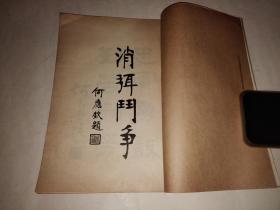 消弭鬥爭
何應欽題